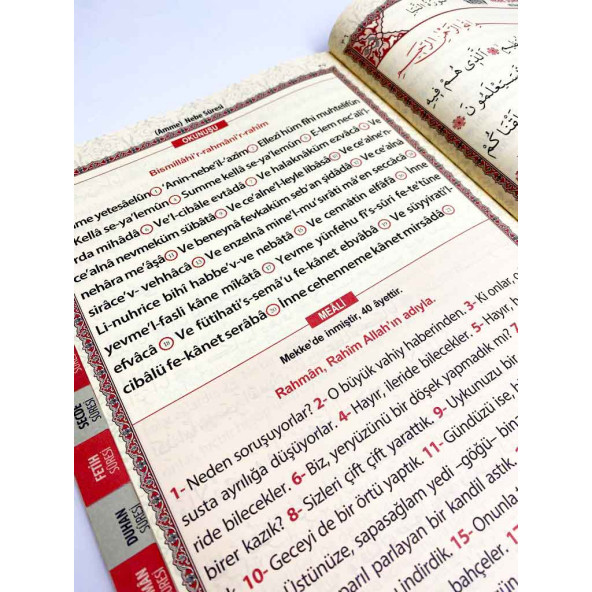 (Amme) Nebe Sûresi
OKUNUŞU
Bismillâhi'r-rahmâni'r-rahîm
me yetesâelûn 1 'Anin-nebe'il-'azîm 2 Ellezî hüm fîhi muhtelifûn
Kellâ se-ya'lemûn 4 Summe kellâ se-ya'lemûn 5 E-lem nec'ali'l-
rda mihâdâ 6 Ve'l-cibâle evtâdâ 7 Ve halaknâküm ezvâcâ 8 Ve
ce'alnâ nevmeküm sübâtâ 9 Ve ce'alne'l-leyle libâsâ 10 Ve ce'alne'n-
nehâra me'âşâ 11 Ve beneynâ fevkaküm seb'an şidâdâ 12 Ve ce'alnâ
sirâce'v- vehhâcâ 13 Ve enzelnâ mine'l-mu'sırâti mâ'en seccâcâ 14
Li-nuhrice bihî habbe'v-ve nebâtâ 15 Ve cennâtin elfâfâ 16 İnne
yevme'l-fasli kâne mîkâtâ 17 Yevme yünfehu fi's-sûri fe-te'tûne
efvâcâ 18 Ve fütihati's-semâ'u fe-kânet ebvâbâ 19 Ve süyyirati'l-
cibâlü fe-kânet serâbâ 20 İnne cehenneme kânet mirsâdâ 21
MEÂLİ
Mekke'de inmiştir, 40 âyettir.
Rahmân, Rahîm Allah'ın adıyla.
1- Neden soruşuyorlar? 2- O büyük vahiy haberinden. 3- Ki onlar, o
susta ayrılığa düşüyorlar. 4- Hayır, ileride bilecekler. 5- Hayır, h
ride bilecekler. 6- Biz, yeryüzünü bir döşek yapmadık mı? 7-
birer kazık? 8- Sizleri çift çift yarattık. 9- Uykunuzu bir
10- Geceyi de bir örtü yaptık. 11- Gündüzü ise,
Üstünüze, sapasağlam yedi –göğü– bin
parıl parlayan bir kandil astık.
indirdik. 15- Onunla
bahçeler. 17
SECDE
SÛRESİ
FETİH
SÛRESİ
DUHAN
SÛRESİ
بِسْمِ اللّٰهِ الرَّحْمٰنِ الرَّحِيمِ
اَلَّذِي هُمْ فِيهِ
سَيَعْلَمُونَ